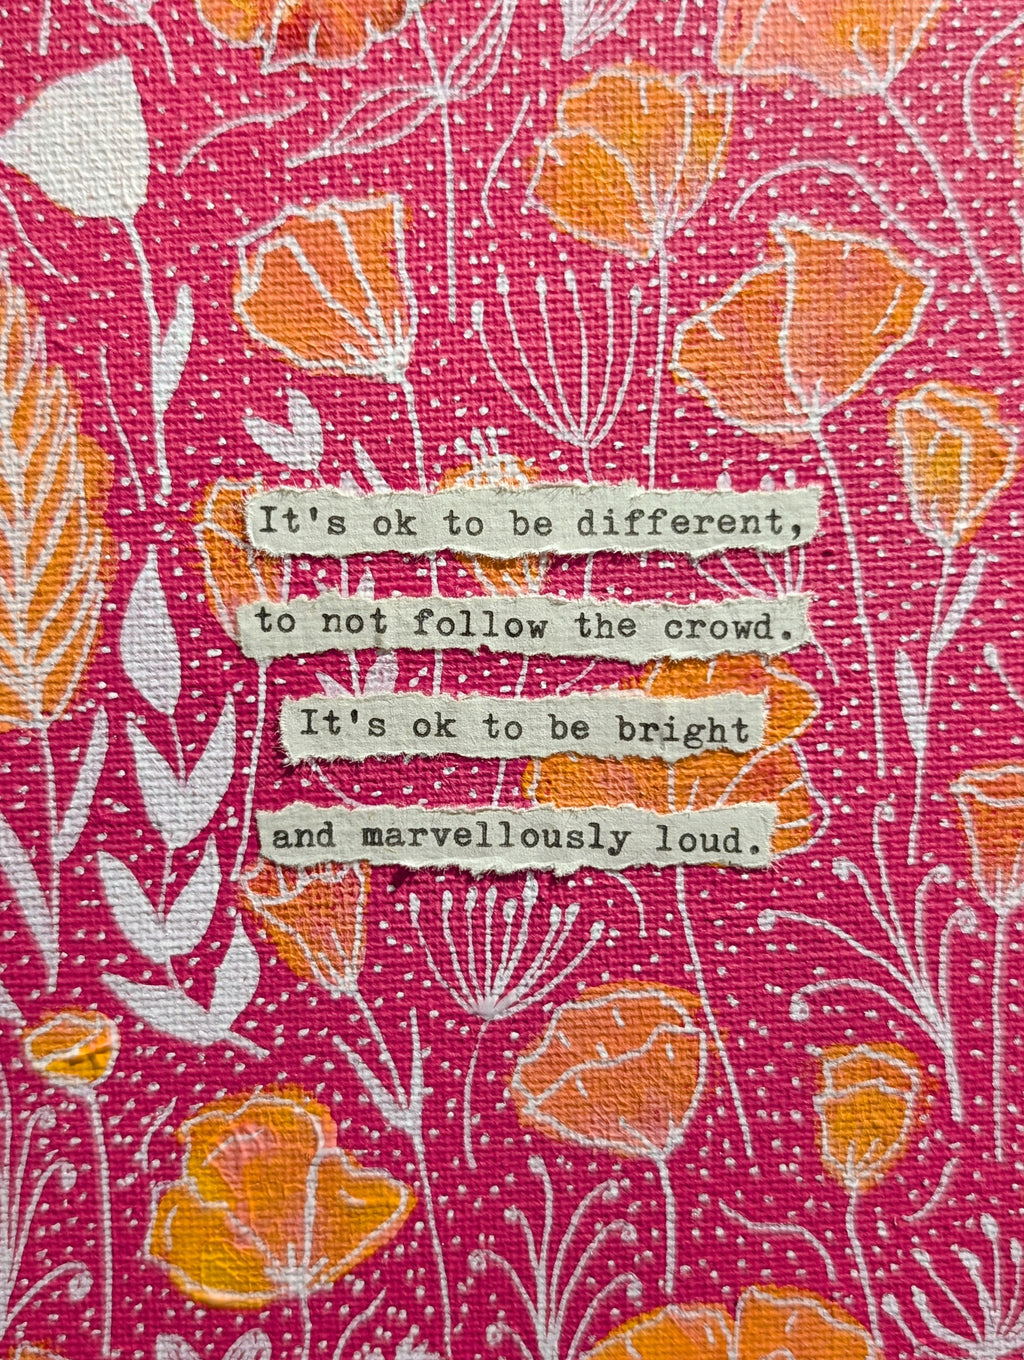 It's ok to be different,
to not follow the crowd.
It's ok to be bright
and marvellously loud.